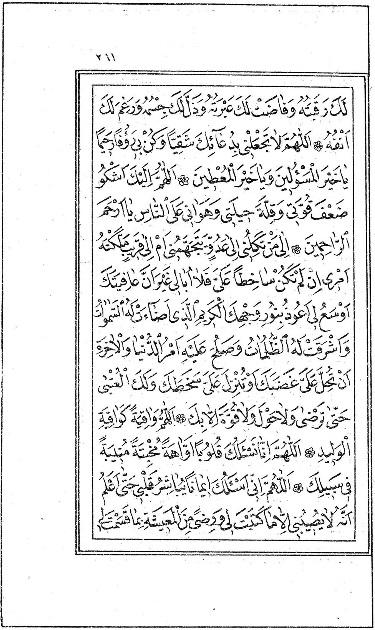 ٢٦١
لَكَ رَقَبَتُهُ وَفَاضَتْ لَكَ عَبْرَتُهُ وَذَلَّ لَكَ جِسْمُهُ وَرَغِمَ لَكَ
اَنْفُهُ ۞ اَللّٰهُمَّ لَا تَجْعَلْنِي بِدُعَائِكَ شَقِيًّا وَكُنْ بِي رَؤُفًا رَحِيمًا
يَا خَيْرَ الْمَسْؤُلِينَ وَيَا خَيْرَ الْمُعْطِينَ ۞ اَللّٰهُمَّ اِلَيْكَ اَشْكُو
ضَعْفَ قُوَّتِي وَقِلَّةَ حِيلَتِي وَهَوَانِي عَلَى النَّاسِ يَا اَرْحَمَ
الرَّاحِمِينَ ۞ اِلَى مَنْ تَكِلُنِي اِلَى عَدُوٍّ يَتَجَهَّمُنِي اَمْ اِلَى قَرِيبٍ مَلَّكْتَهُ
اَمْرِي اِنْ لَمْ تَكُنْ سَاخِطًا عَلَيَّ فَلَا اُبَالِي غَيْرَ اَنَّ عَافِيَتَكَ
اَوْسَعُ لِي اَعُوذُ بِنُورِ وَجْهِكَ الْكَرِيمِ الَّذِي اَضَاءَتْ لَهُ السَّمٰوَاتُ
وَاَشْرَقَتْ لَهُ الظُّلُمَاتُ وَصَلُحَ عَلَيْهِ اَمْرُ الدُّنْيَا وَالْاٰخِرَةِ
اَنْ تُحِلَّ عَلَيَّ غَضَبَكَ اَوْ تُنْزِلَ عَلَيَّ سَخَطَكَ وَلَكَ الْعُتْبٰى
حَتّٰى تَرْضٰى وَلَا حَوْلَ وَلَا قُوَّةَ اِلَّا بِكَ ۞ اَللّٰهُمَّ وَاقِيَةً كَوَاقِيَةِ
الْوَلِيدِ ۞ اَللّٰهُمَّ اِنَّا نَسْئَلُكَ قُلُوبًا اَوَّاهَةً مُخْبِتَةً مُنِيبَةً
فِي سَبِيلِكَ ۞ اَللّٰهُمَّ اِنِّي اَسْئَلُكَ اِيمَانًا يُبَاشِرُ قَلْبِي حَتّٰى اَعْلَمَ
اَنَّهُ لَا يُصِيبُنِي اِلَّا مَا كَتَبْتَ لِي وَرِضًى مِنَ الْمَعِيشَةِ بِمَا قَسَمْتَ لِي